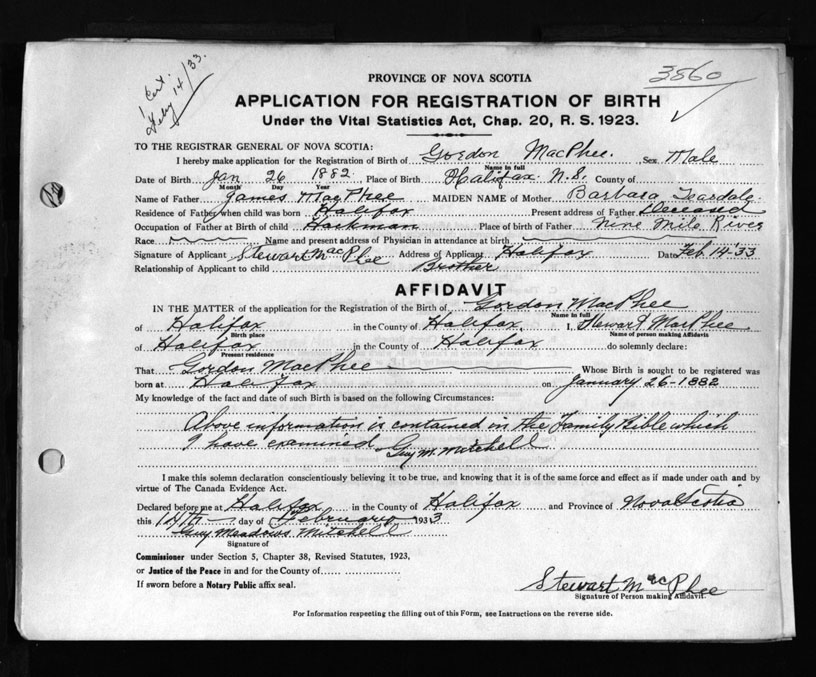 1 Cert.
Feby 14/33.
3860
PROVINCE OF NOVA SCOTIA
APPLICATION FOR REGISTRATION OF BIRTH
Under the Vital Statistics Act, Chap. 20, R. S. 1923.
TO THE REGISTRAR GENERAL OF NOVA SCOTIA:
I hereby make application for the Registration of Birth of Gordon MacPhee. Sex Male
Name in full
Date of Birth Jan 26 1882 Place of Birth Halifax N.S. County of
Month Day Year
Name of Father James MacPhee MAIDEN NAME of Mother Barbara Teasdale
Residence of Father when child was born Halifax Present address of Father Deceased
Occupation of Father at Birth of child Place of birth of Father Nine Mile River
Race Name and present address of Physician in attendance at birth
Signature of Applicant Stewart MacPhee Address of Applicant Halifax Date Feb. 14-'33
Relationship of Applicant to child Brother
AFFIDAVIT
IN THE MATTER of the application for the Registration of the Birth of Gordon MacPhee
Name in full
of Halifax in the County of Halifax. I, Stewart MacPhee
Birth place Name of person making Affidavit
of Halifax in the County of Halifax do solemnly declare:
Present residence
That Gordon MacPhee Whose Birth is sought to be registered was
born at Halifax on January 26-1882
My knowledge of the fact and date of such Birth is based on the following Circumstances:
Above information is contained in the Family Bible which
I have examined Guy M. Mitchell
I make this solemn declaration conscientiously believing it to be true, and knowing that it is of the same force and effect as if made under oath and by
virtue of The Canada Evidence Act.
Declared before me at Halifax in the County of Halifax and Province of Nova Scotia
this 14th day of February 1933
Guy Meadows Mitchell
Signature of
Commissioner under Section 5, Chapter 38, Revised Statutes, 1923,
or Justice of the Peace in and for the County of
If sworn before a Notary Public affix seal.
Stewart MacPhee
Signature of Person making Affidavit.
For Information respecting the filling out of this Form, see Instructions on the reverse side.